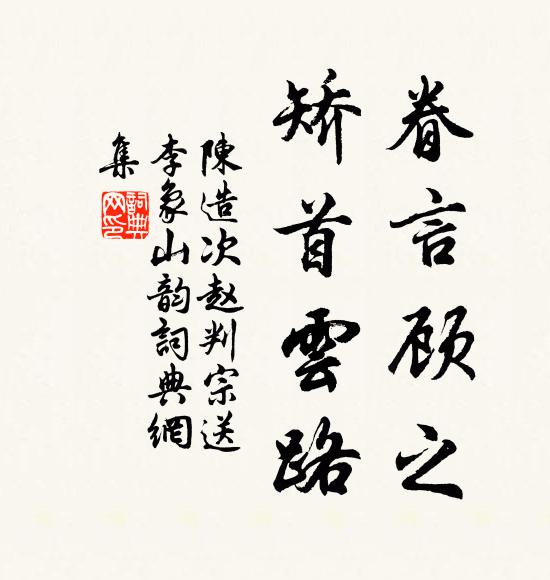 眷言顾之
矫首雲路
陳造次赵判宗送
李象山韵詞典網
集
詞典
网印